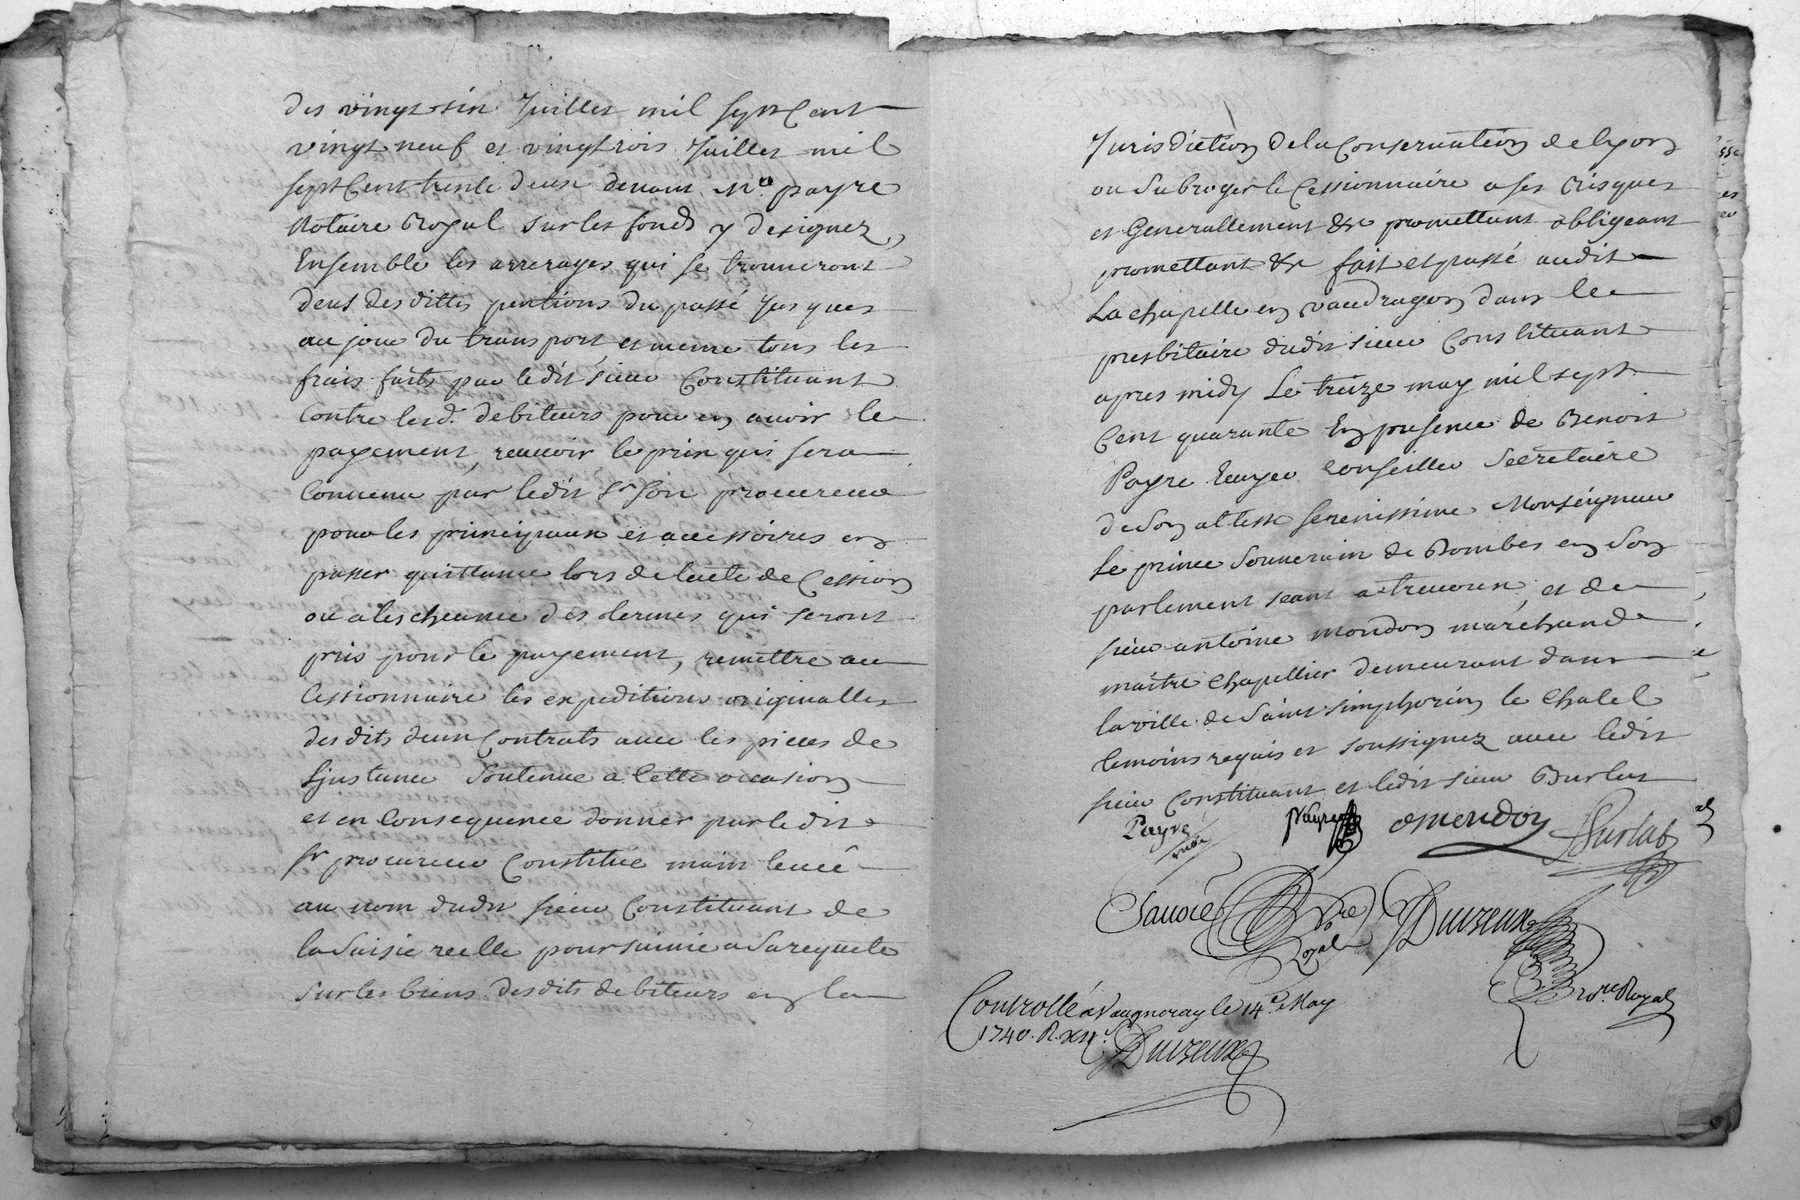 des vingt six Juillet mil sept Cent
vingt neuf et vingt trois Juillet mil
sept Cent trente deux devant Me payre
Notaire Royal sur les fonds y designez,
Ensemble les arrerages qui se trouveront
deus des dittes pentions du passé Jusques
au jour du transport, et meme tous les
frais faits par ledit sieur Constituant
Contre lesd. debiteurs pour en avoir le
payement, recevoir le prix qui sera
Convenu par ledit Sr son procureur
pour les principaux et accessoires en
passer quittance lors de lacte de Cession
ou a lescheance des termes qui seront
pris pour le payement, remettre au
Cessionnaire les expeditions originalles
desdits deux Contrats avec les pieces de
Ljnstance soutenue a Cette occasion
et en Consequence donner par ledit
Sr procureur Constitué main levée
au nom dudit sieur Constituant de
la Saisie reelle poursuivie a Sa requete
sur les biens desdits debiteurs en la
Jurisdiction de la Conservation de lyon
ou Subroger le Cessionnaire a ses Risques
et Generallement &c promettant obligeant
promettant &c fait et passé audit
La chapelle en vaudragon dans le
presbitaire dudit sieur Constituant
apres midy Le treize may mil sept
Cent quarante En presence de Benoit
Payre Ecuyer Conseiller Secretaire
de Son altesse serenissime Monseigneur
Le prince Souverain de Dombes en Son
parlement seant a trevoux, et de
sieur antoine mondon marchand
maitre chapellier demeurant dans
la ville de Saint simphorien le Chatel
temoins requis et soussignez avec ledit
sieur Constituant et ledit sieur Burlat
Payre payre amendon Burlat
Savoie Nre Royal Duvzeux
Nre Royal
Controllé a Vaugneray le 14e May
1740. R. xijs. Duvzeux